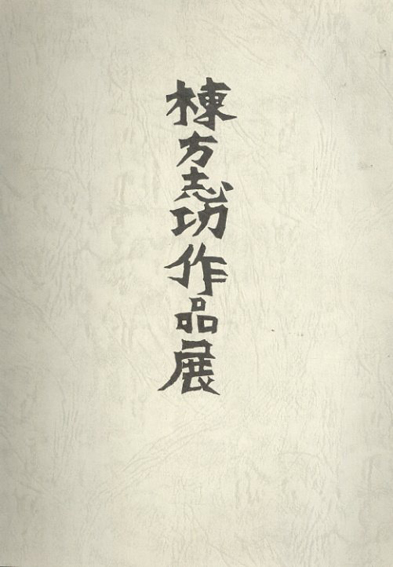 棟方志功作品展